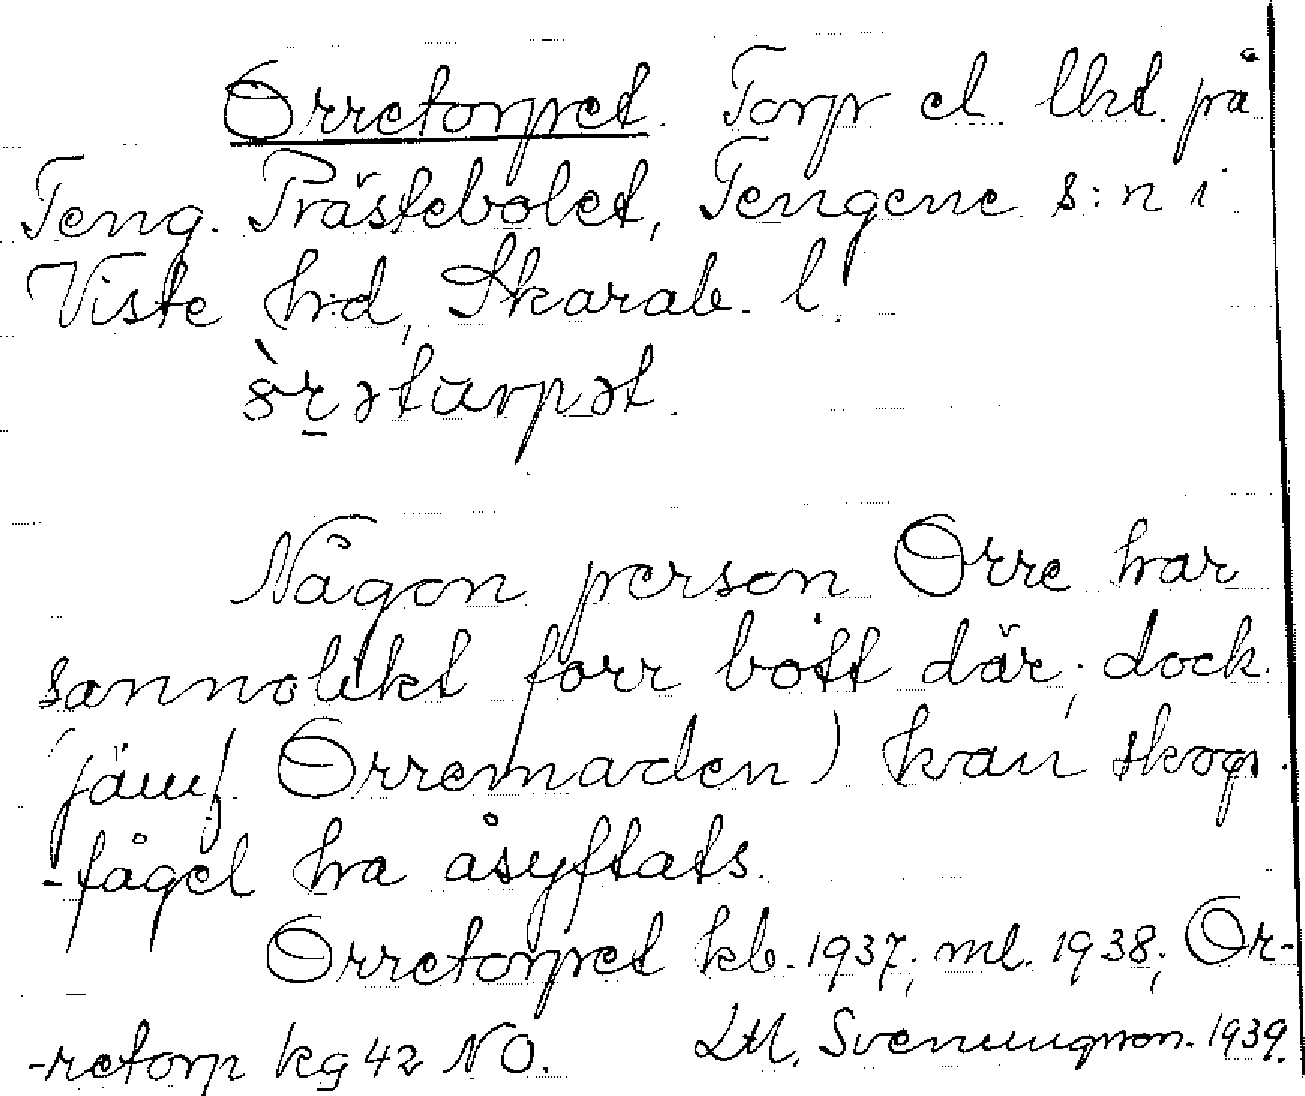 Orretorpet. Torp el. lht. på
Teng. Prästebolet, Tengene s:n i
Viste hd, Skarab. l.
Någon person Orre har
sannolikt förr bott där; dock
(jämf. Orremaden) kan skog-
-fågel ha åsyftats.
Orretorpet kb. 1937; ml. 1938; Or-
-retorp kg 42 NO. LM. Svenungsson. 1939.